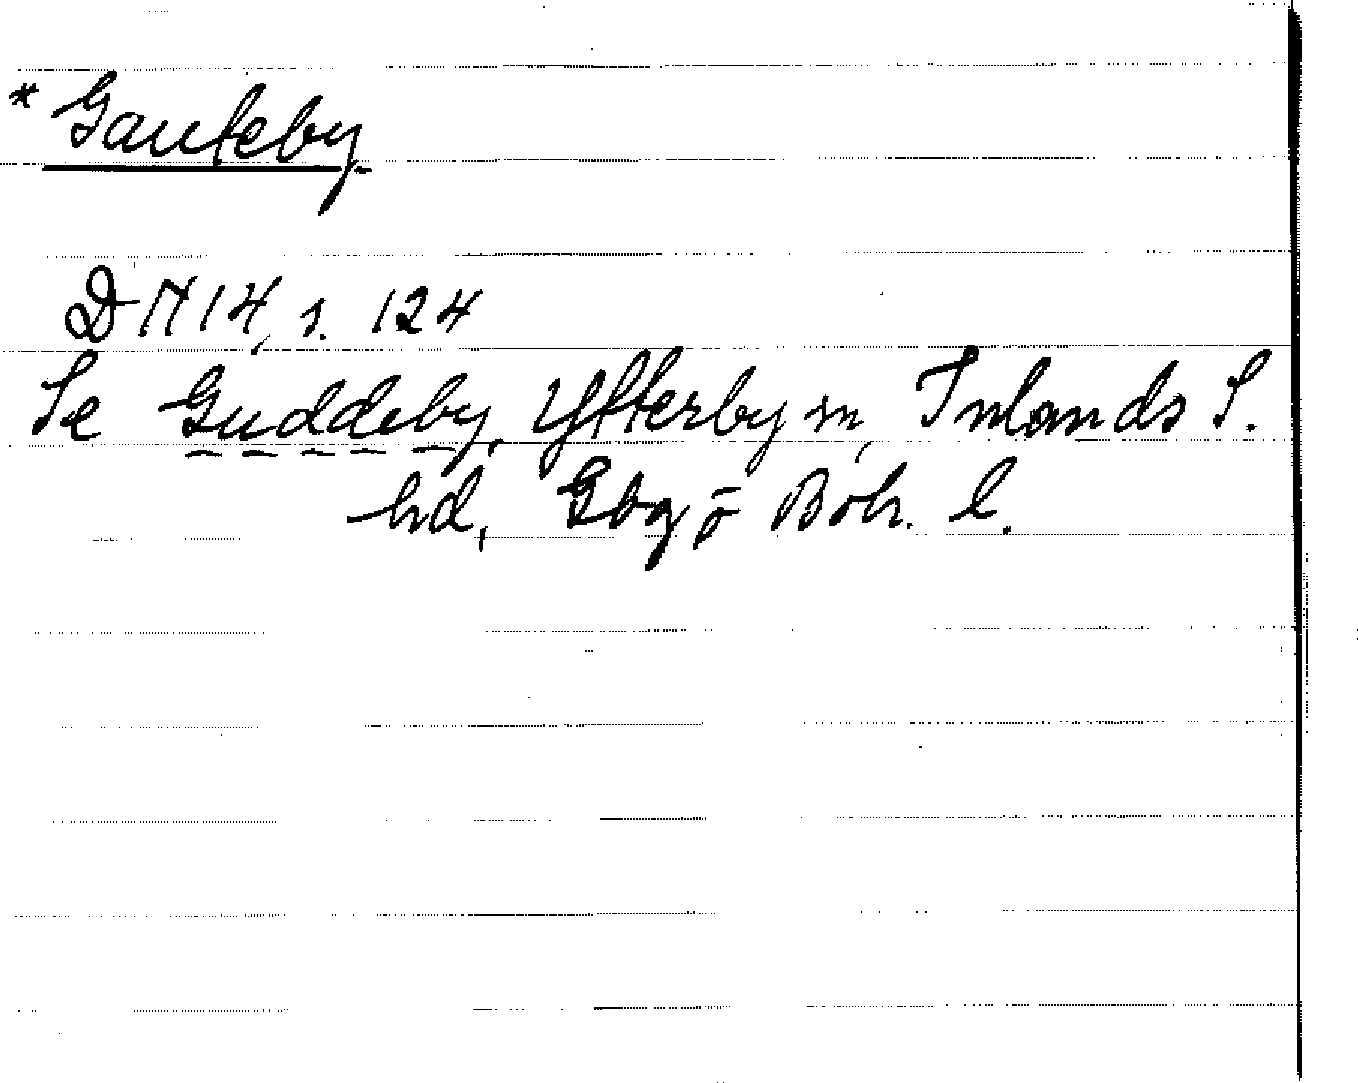 * Gauteby
DN 14, s. 124
Se Guddeby, Ytterby sn, Inlands S.
hd, Gbg o Boh. l.